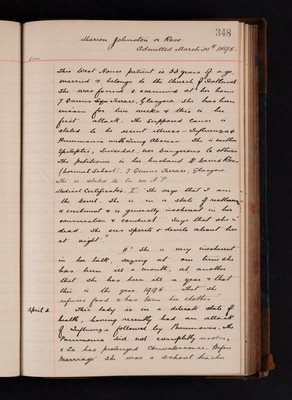 348
Marion Johnston or Ross
Admitted March 30th 1898.
This West House patient is 33 years of age,
married & belongs to the Church of Scotland.
She was found & examined at her home
7 Queens Terrace, Glasgow. She has been
insane for two weeks & this is her
first attack. The supposed cause is
stated to be recent illness - Influenza &
Pneumonia with Lung Abscess. She is neither
Epileptic, Suicidal, nor Dangerous to others.
The Petitioner is her husband David Ross
(Normal School), 7 Queens Terrace, Glasgow
She is stated to be
Medical Certificates. I. She says that "I am
the Devil". She is in a state of restlessness
& excitement & is generally incoherent in her
conversation & conduct. Says that she is
dead. She sees spirits & devils about her
at night"
II" She is very incoherent
in her talk, saying at one time she
has been ill a month, at another
that she has been ill a year & that
this is the year 1996. That she
refuses food & has torn her clothes
April 2. This lady is in a delicate state of
health, having recently had an attack
of Influenza followed by Pneumonia. The
Pneumonia did not completely resolve,
& has prolonged Convalescence. Before
Marriage she was a School teacher